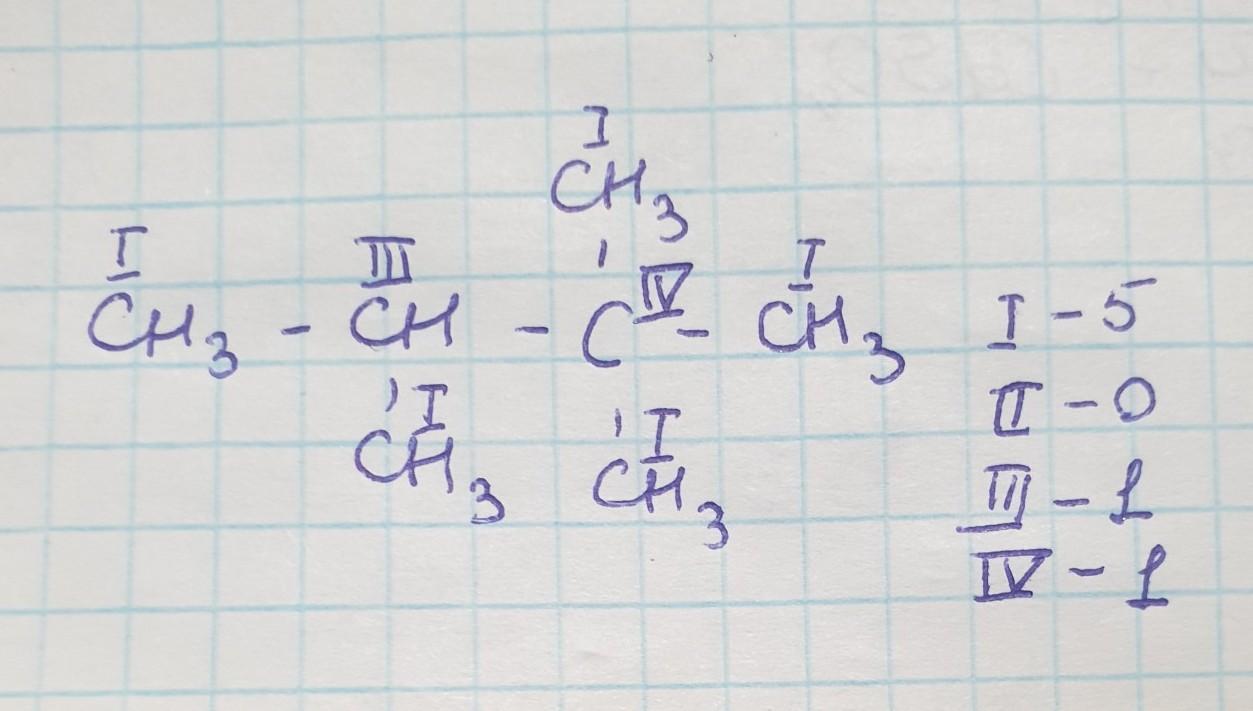 I
CH3
I III IV I
CH3 - CH - C - CH3
I I
CH3 CH3
I - 5
II - 0
III - 1
IV - 1